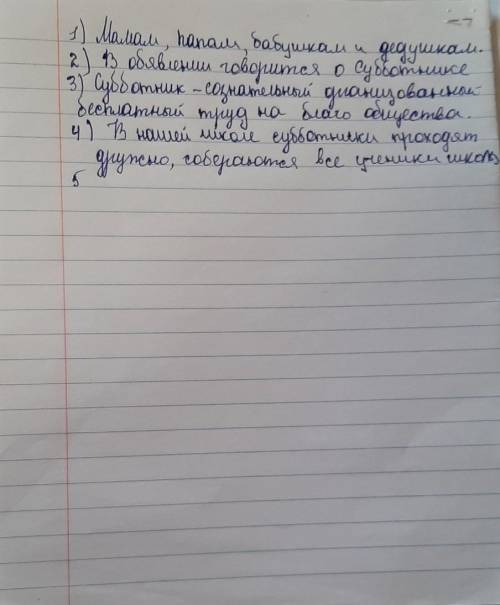 1) Мамам, папам, бабушкам и дедушкам.
2) В обявлении говорится о Субботнике
3) Субботник - сознательный дианизованный
бесплатный труд на благо общества.
4) В нашей школе субботники проходят
дружно, собераются все ученики школы
5